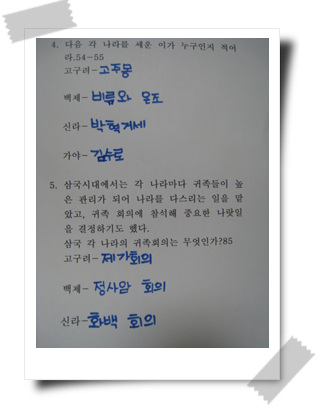 4. 다음 각 나라를 세운 이가 누구인지 적어
라.54-55
고구려-고주몽
백제-비류와 온조
신라-박혁거세
가야-김수로
5. 삼국시대에서는 각 나라마다 귀족들이 높
은 관리가 되어 나라를 다스리는 일을 맡
았고, 귀족 회의에 참석해 중요한 나랏일
을 결정하기도 했다.
삼국 각 나라의 귀족회의는 무엇인가?85
고구려-제가회의
백제-정사암 회의
신라-화백 회의